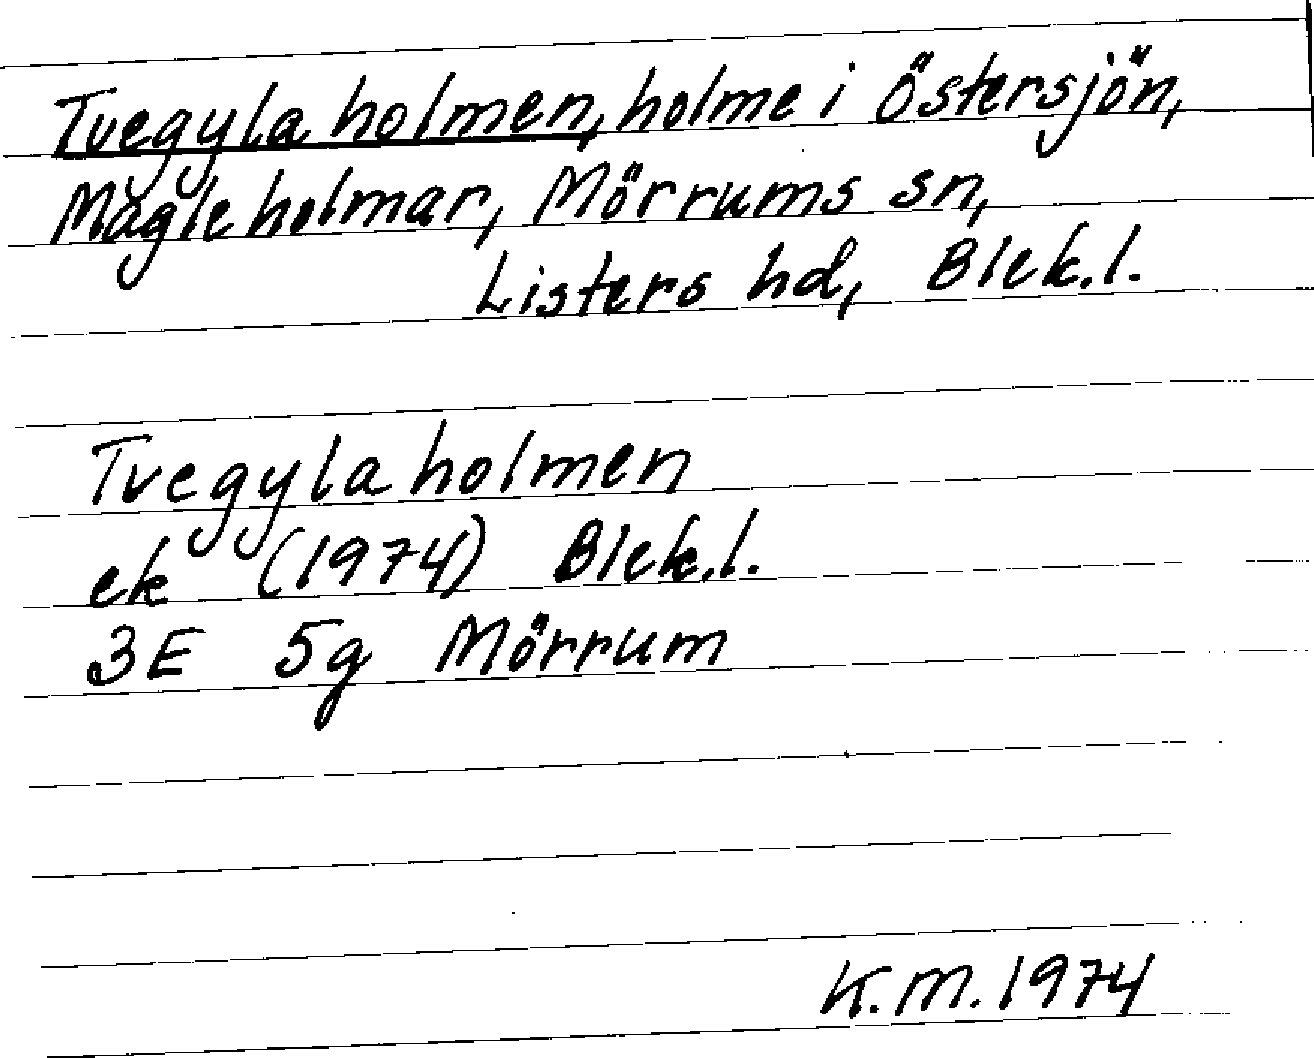 Tvegyla holmen, holme i Östersjön,
Magleholmar, Mörrums sn,
Listers hd, Blek.l.
Tvegyla holmen
ek (1974) Blek.l.
3E 5g Mörrum
K.M. 1974